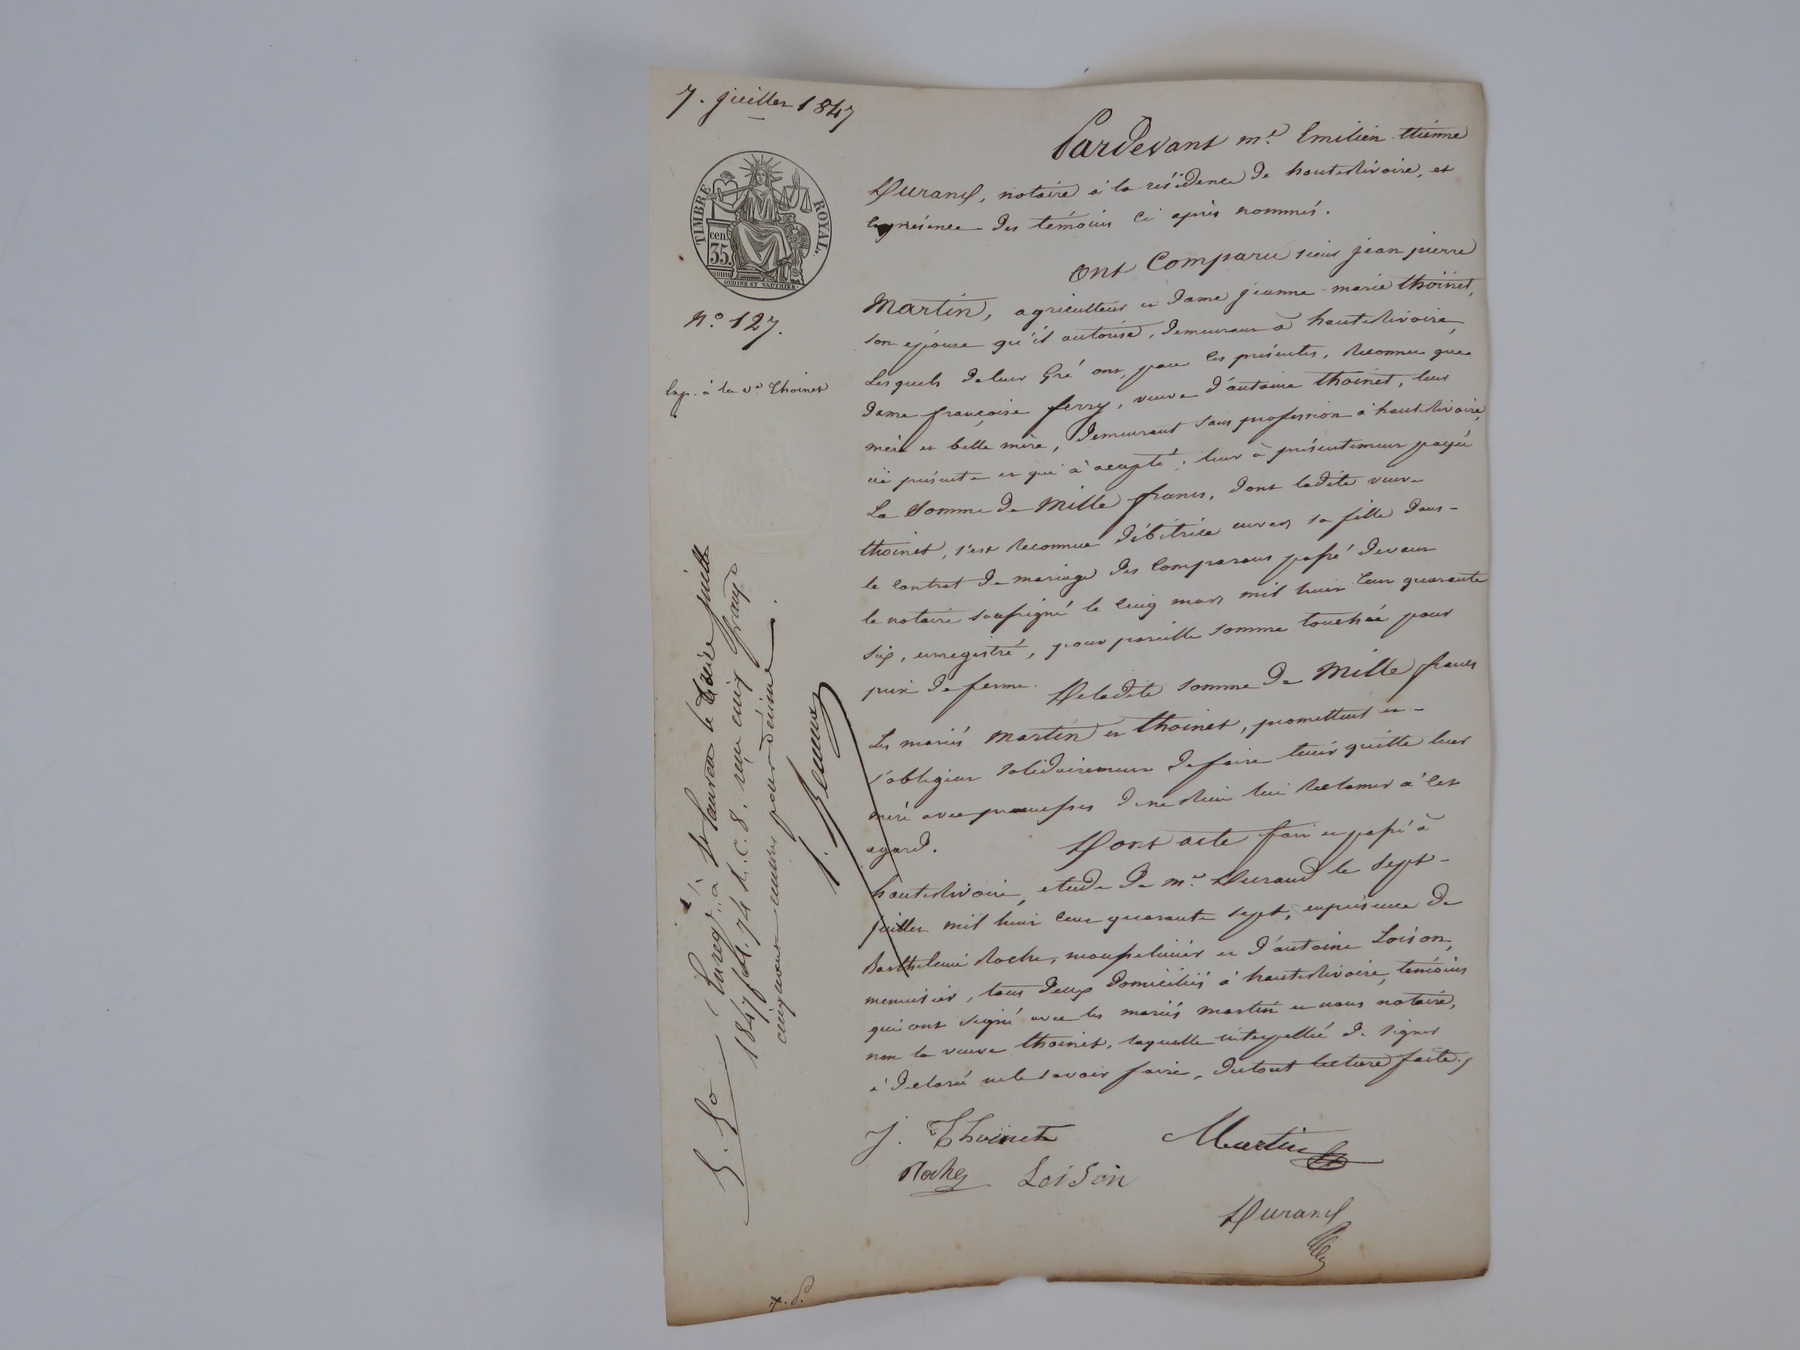 7. juillet 1847
TIMBRE ROYAL.
cen.
35.
N.o 127.
Exp. à la ve Thoinet
Pardevant me Emilien-Etienne
Durand, notaire à la résidence de hauterivoire, et
en présence des témoins ci après nommés.
Ont Comparu sieur jean pierre
Martin, agriculteur et dame jeanne-marie thoinet,
son épouse qu'il autorise, demeurant à hauterivoire,
Lesquels de leur Gré ont, par les présentes, Reconnu que
dame françoise ferry, veuve d'antoine thoinet, leur
mère et belle mère, demeurant sans profession à hauterivoire,
ici présente et qui à accepté, leur à présentement payée
La Somme de Mille francs, dont ladite veuve
thoinet, s'est Reconnue débitrice envers sa fille dans-
le contrat de mariage des Comparans passé devant
le notaire soussigné le cinq mars mil huit cent quarante
six, enregistré, pour pareille somme touchée pour
prix de ferme. De ladite somme de Mille francs
Les mariés Martin et thoinet, promettent et-
s'obligent solidairement de faire tenir quitte leur
mère avec promesses de ne Rien lui Réclamer à cet
égard. Dont acte fait et passé à
hauterivoire, étude de me Durand le sept-
juillet mil huit cent quarante sept, en présence de
Barthelemi Roche, et d'antoine Loison,
menuisier, tous deux domiciliés à hauterivoire, témoins
qui ont signé avec les mariés Martin et nous notaire,
non la veuve thoinet, laquelle interpellée de signer
à déclaré ne le savoir faire, du tout lecture faite.
J. Thoinet Martin
Roche Loison
Durand
Enreg. à St Laurent le treize juillet
1847 f. 74 R. c. 8. reçu cinq francs
cinquante centimes pour décime.
5. 50